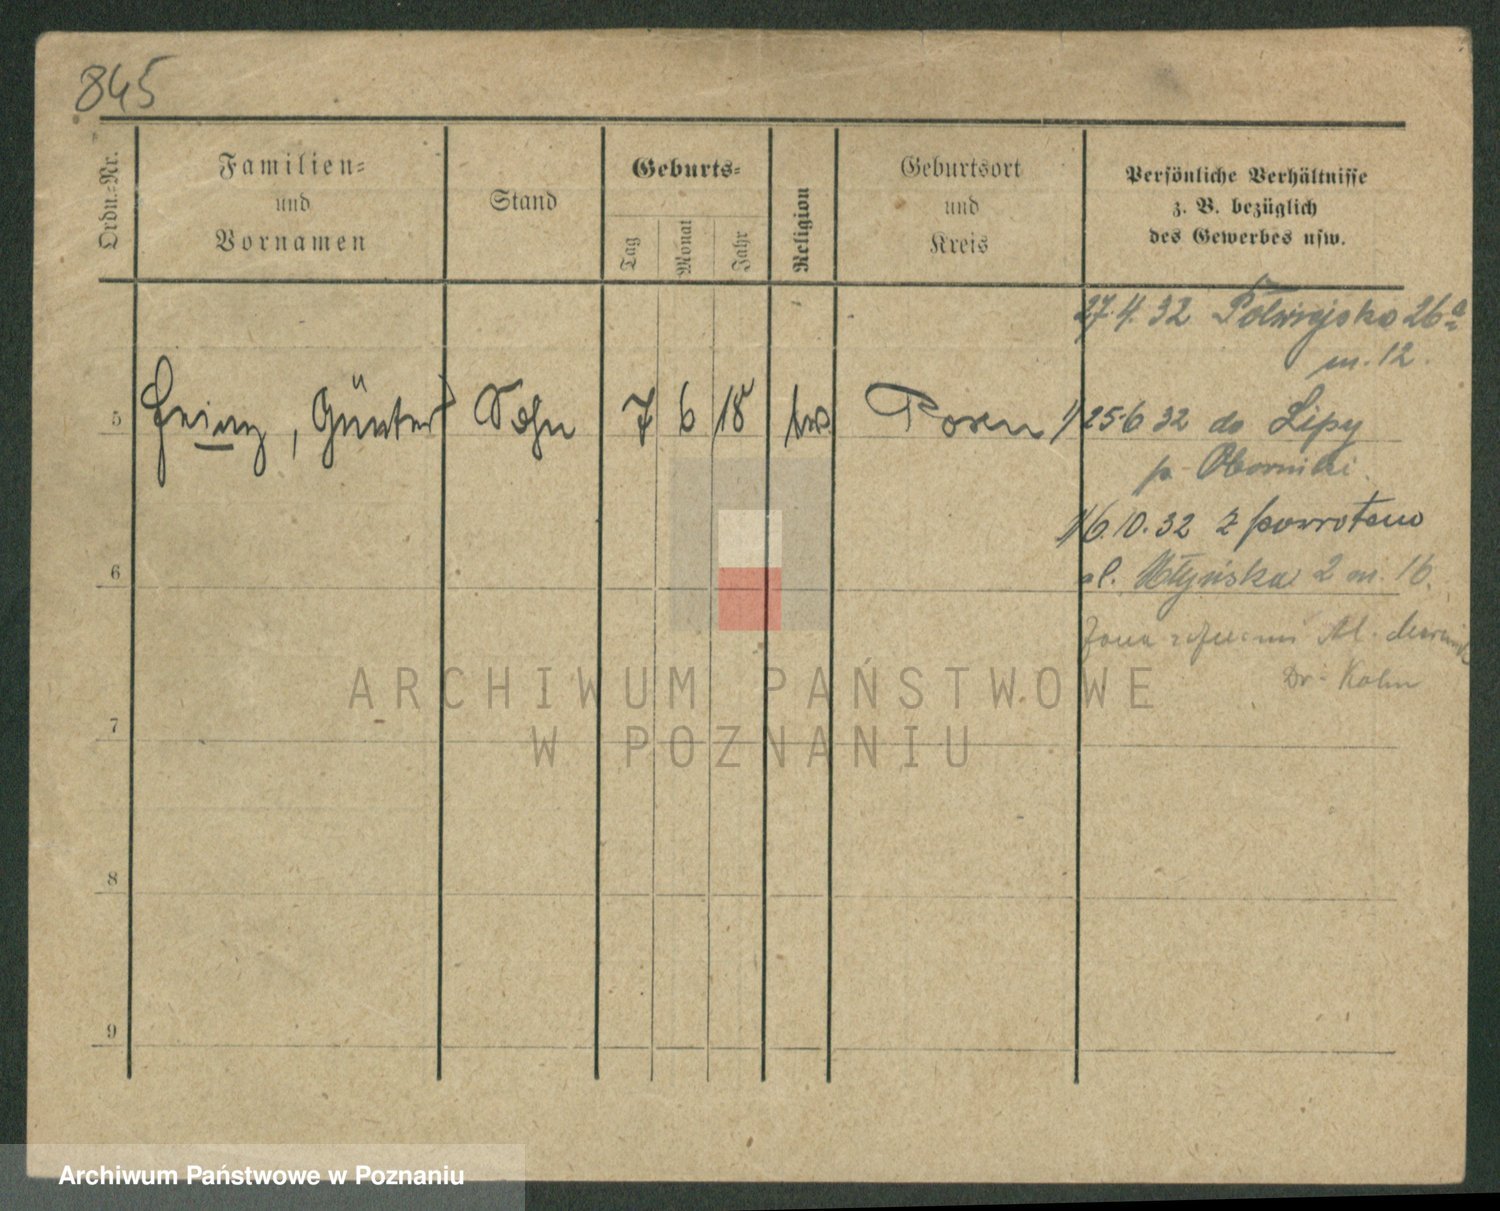 845
Ordn.=Nr.
Familien=
und
Vornamen
Stand
Geburts=
Tag
Monat
Jahr
Religion
Geburtsort
und
Kreis
Persönliche Verhältnisse
z. B. bezüglich
des Gewerbes usw.
27.4.32 Półwiejska 26a
m. 12.
5 Heinz, Günter Sohn 7 6 18 Posen
25.6 32 do Lipy
p. Oborniki.
16.10.32 z powrotem
al. 2 m. 16.
6
Dr. Kohn
7
8
9
ARCHIWUM PAŃSTWOWE
W POZNANIU
Archiwum Państwowe w Poznaniu